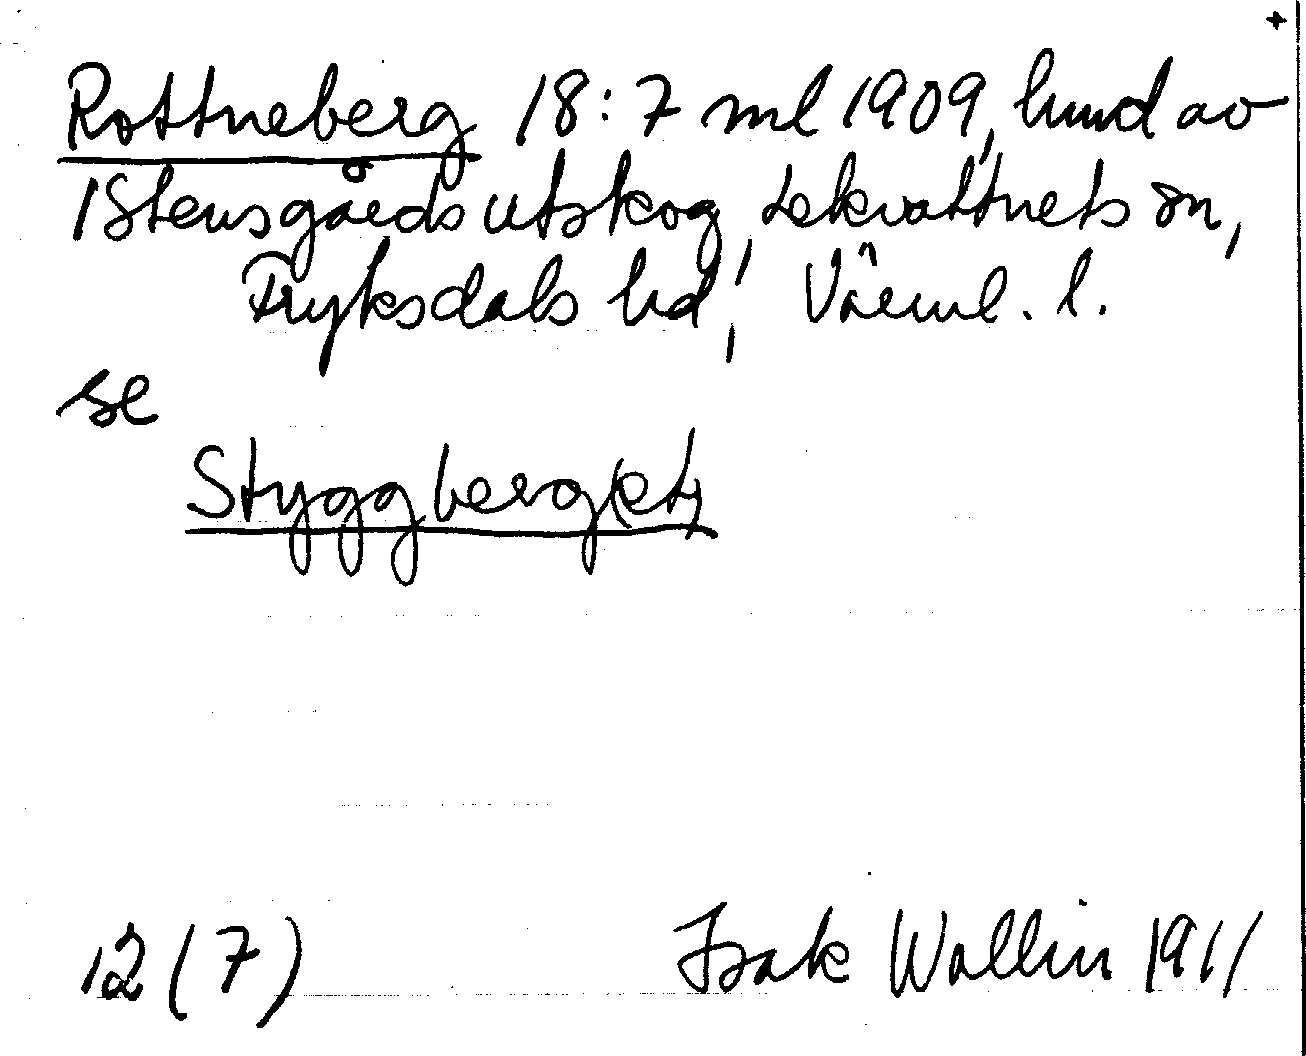 Rottneberg 18:7 ml 1909, hmd av
1 Stensgårds utskog, Lekvattnets sn,
Fryksdals hd, Värml. l.
se
Styggberg(et)
12 (7) Isak Wallin 1911